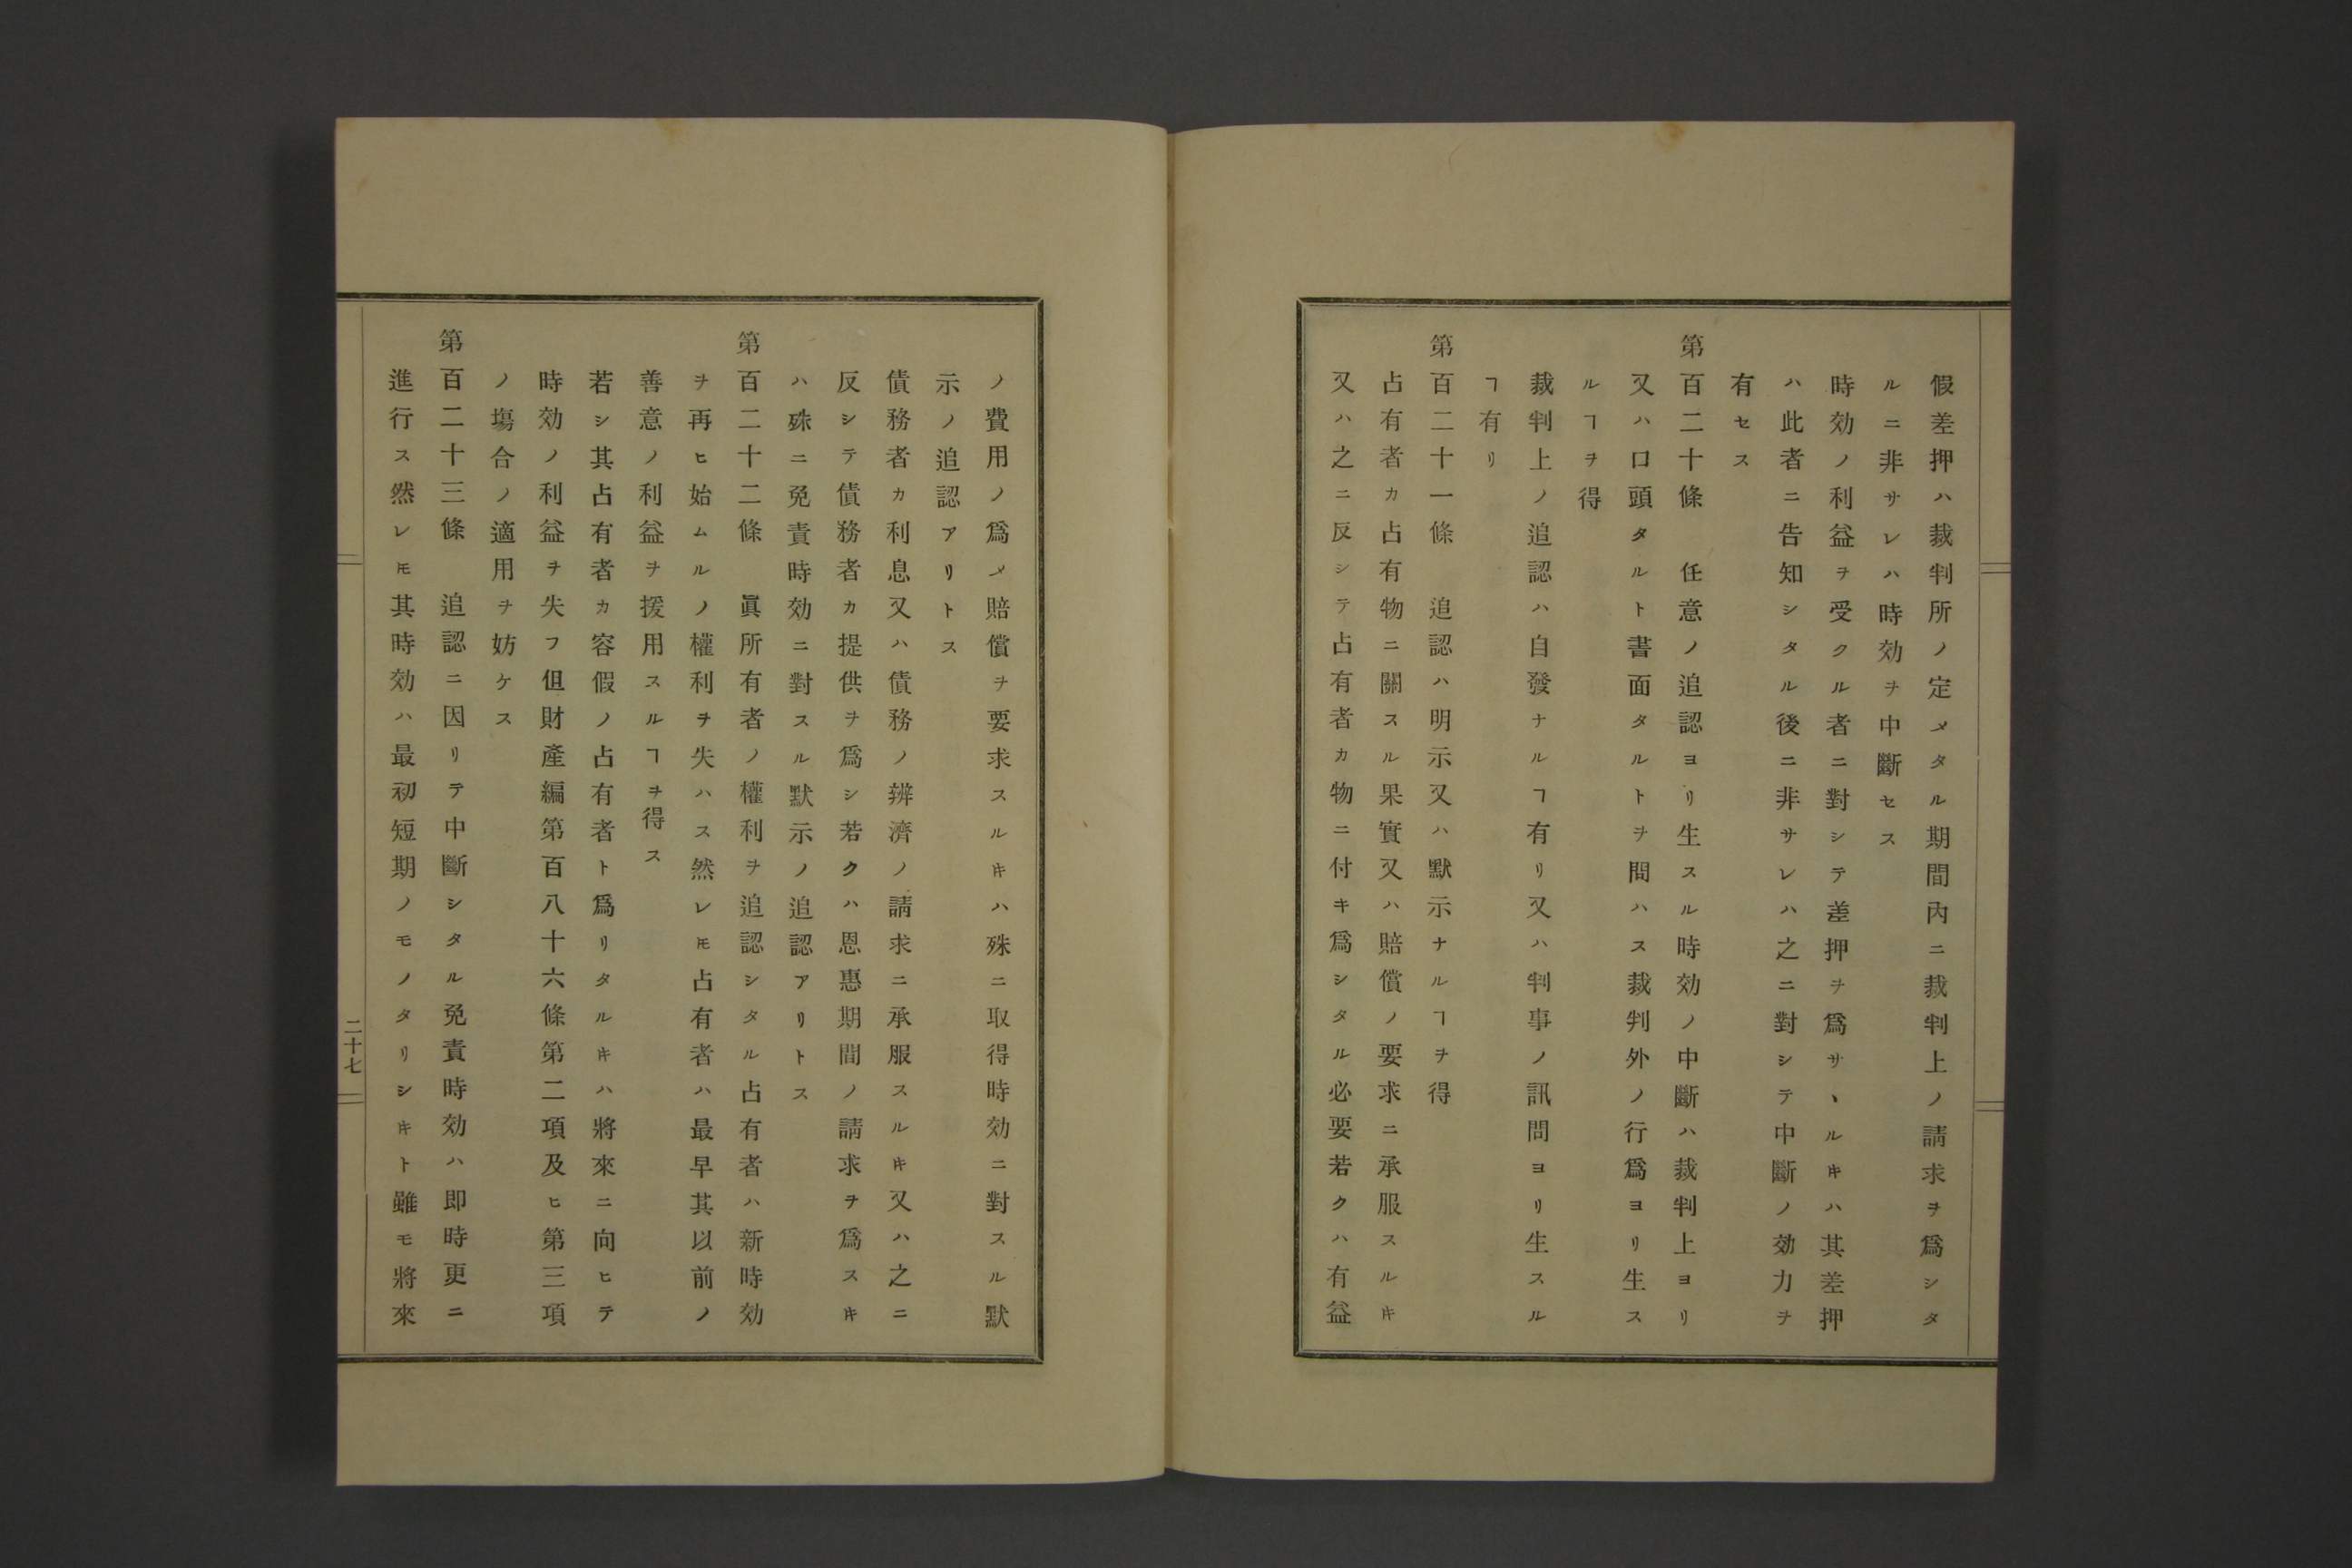 假差押ハ裁判所ノ定メタル期間內ニ裁判上ノ請求ヲ爲シタ
ルニ非サレハ時効ヲ中斷セス
時効ノ利益ヲ受クル者ニ對シテ差押ヲ爲サヽルキハ其差押
ハ此者ニ告知シタル後ニ非サレハ之ニ對シテ中斷ノ効力ヲ
有セス
第百二十條　任意ノ追認ヨリ生スル時効ノ中斷ハ裁判上ヨリ
又ハ口頭タルト書面タルトヲ問ハス裁判外ノ行爲ヨリ生ス
ルヿヲ得
裁判上ノ追認ハ自發ナルヿ有リ又ハ判事ノ訊問ヨリ生スル
ヿ有リ
第百二十一條　追認ハ明示又ハ默示ナルヿヲ得
占有者カ占有物ニ關スル果實又ハ賠償ノ要求ニ承服スルキ
又ハ之ニ反シテ占有者カ物ニ付キ爲シタル必要若クハ有益
ノ費用ノ爲メ賠償ヲ要求スルキハ殊ニ取得時効ニ對スル默
示ノ追認アリトス
債務者カ利息又ハ債務ノ辨濟ノ請求ニ承服スルキ又ハ之ニ
反シテ債務者カ提供ヲ爲シ若クハ恩惠期間ノ請求ヲ爲スキ
ハ殊ニ免責時効ニ對スル默示ノ追認アリトス
第百二十二條　眞所有者ノ權利ヲ追認シタル占有者ハ新時効
ヲ再ヒ始ムルノ權利ヲ失ハス然レ𪜈占有者ハ最早其以前ノ
善意ノ利益ヲ援用スルヿヲ得ス
若シ其占有者カ容假ノ占有者ト爲リタルキハ將來ニ向ヒテ
時効ノ利益ヲ失フ但財產編第百八十六條第二項及ヒ第三項
ノ塲合ノ適用ヲ妨ケス
第百二十三條　追認ニ因リテ中斷シタル免責時効ハ即時更ニ
進行ス然レ𪜈其時効ハ最初短期ノモノタリシキト雖モ將來
二十七